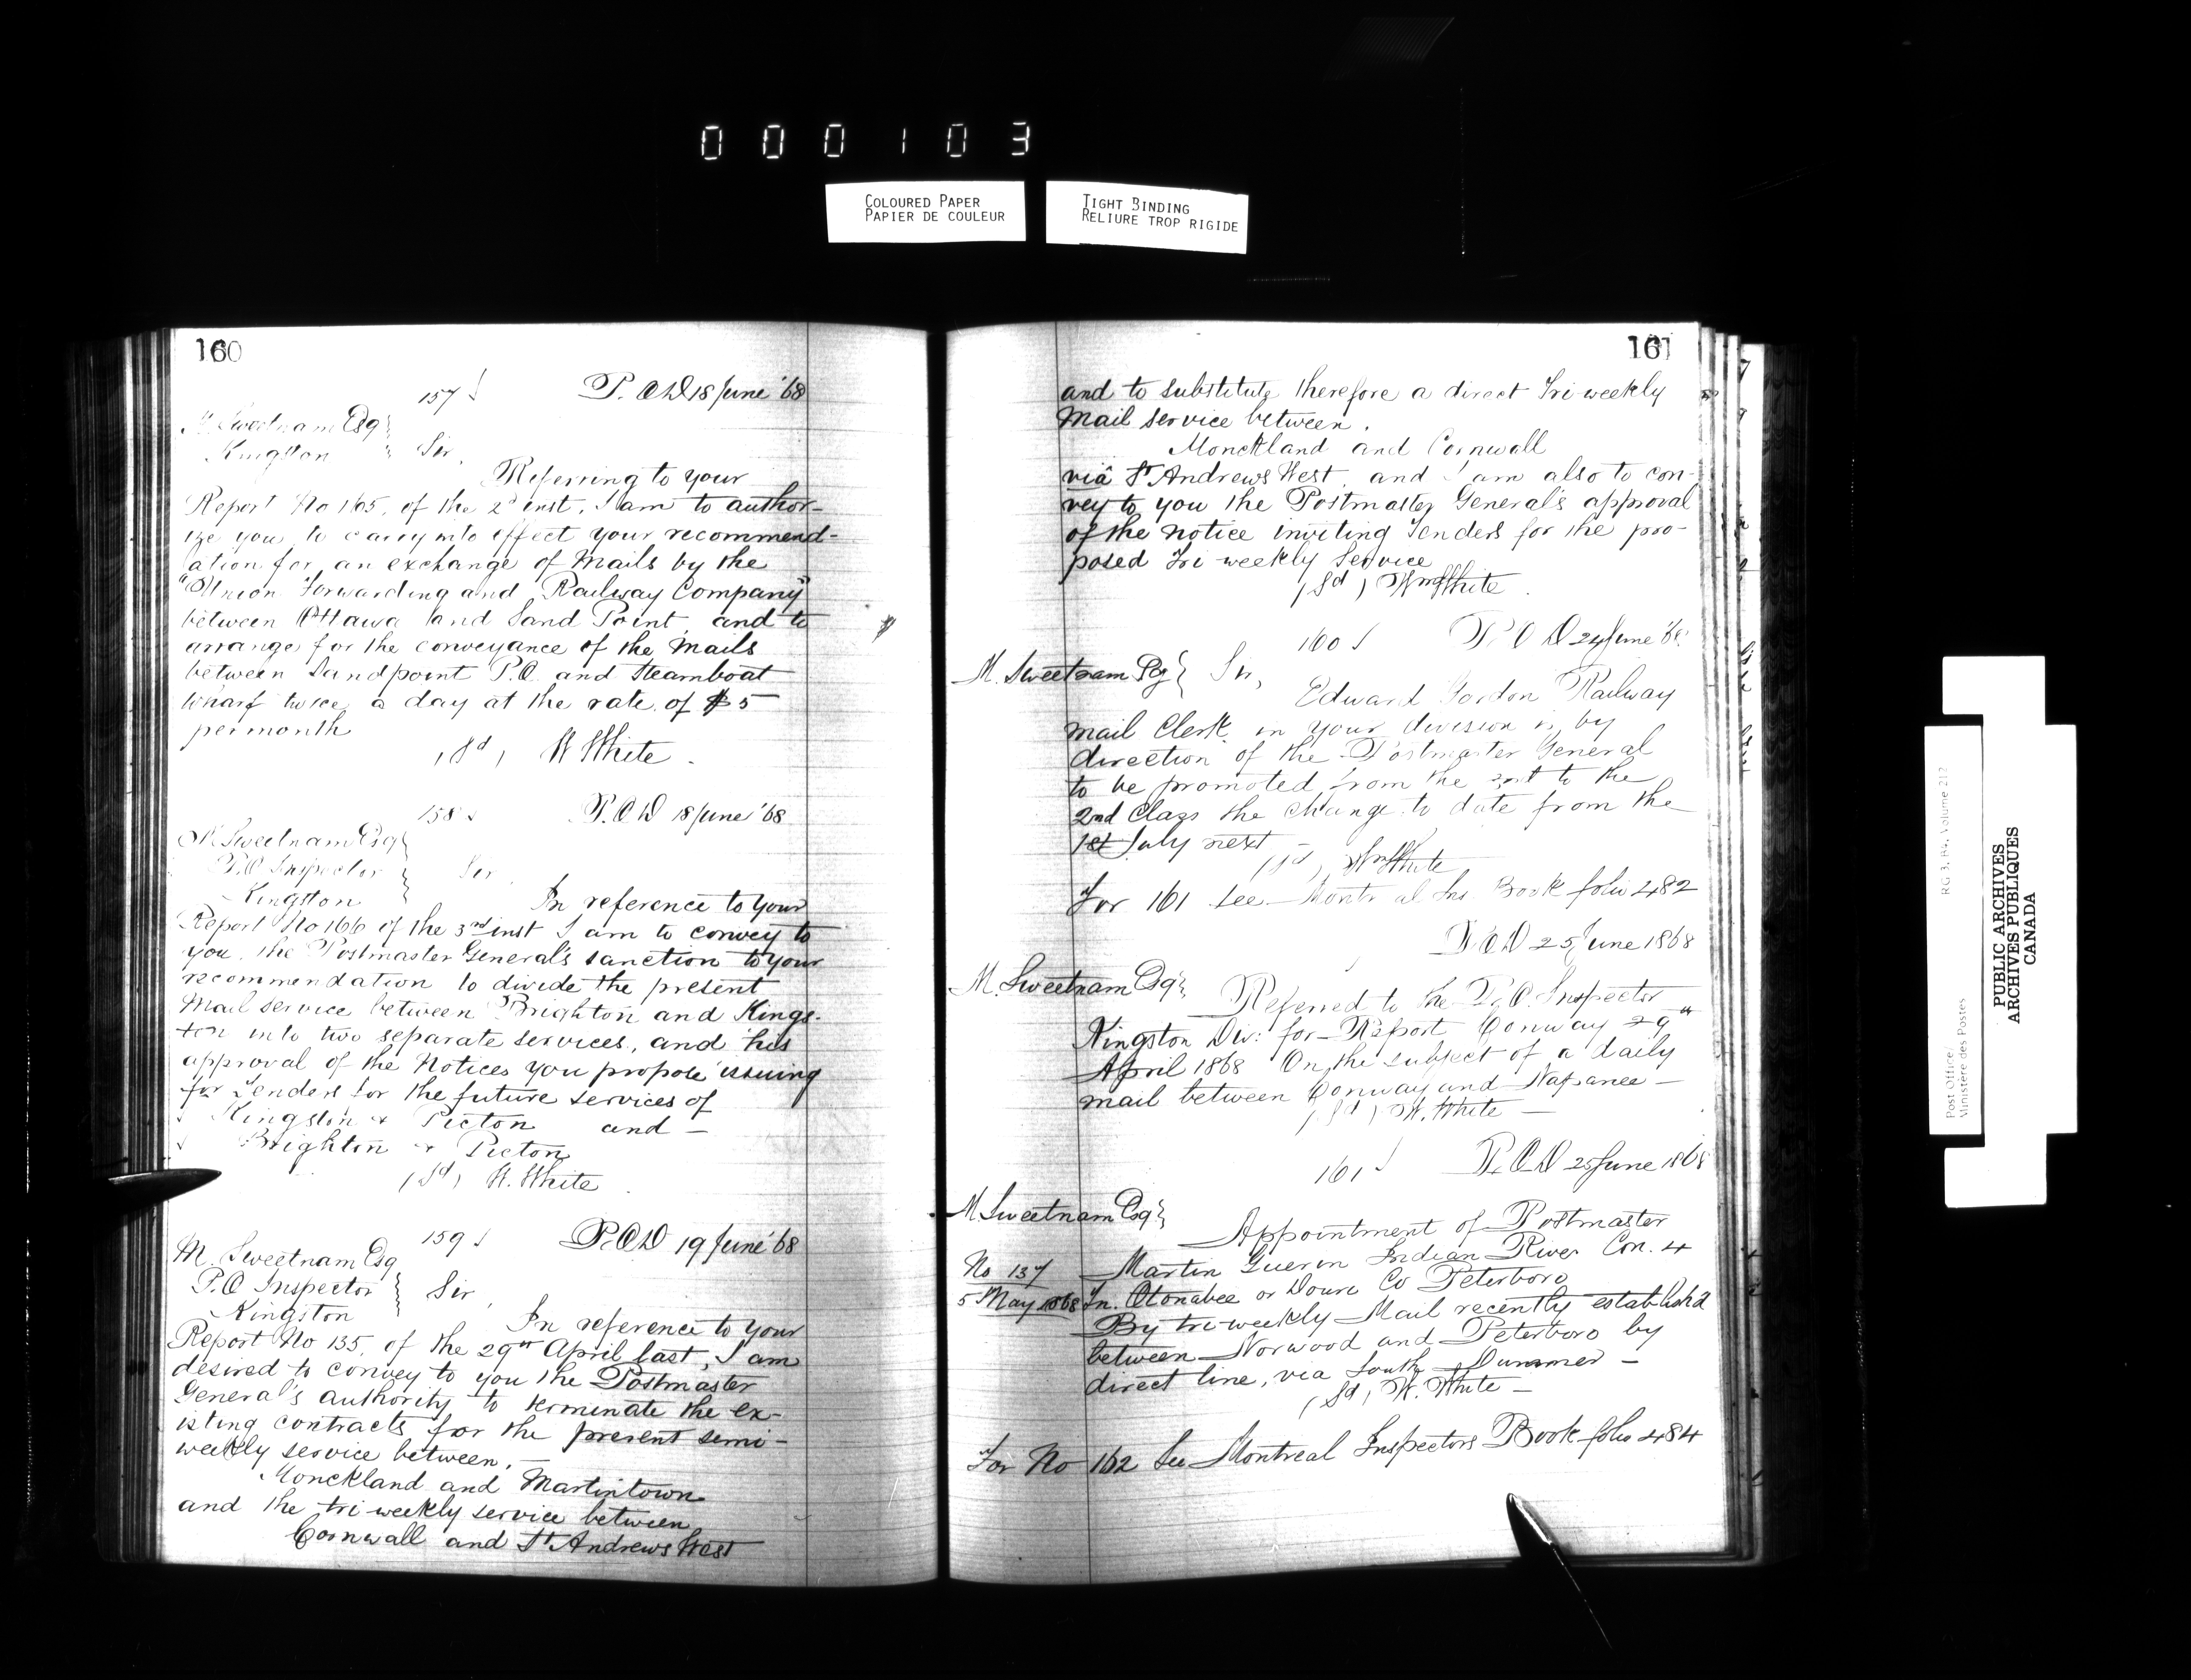 000103
COLOURED PAPER
PAPIER DE COULEUR
TIGHT BINDING
RELIURE TROP RIGIDE
160
157 P.O.D 18 June '68
M. Sweetnam Esq
Kingston Sir,
Referring to your
Report No 165, of the 2d inst, I am to author-
ize you to carry into effect your recommend-
ation for an exchange of Mails by the
"Union Forwarding and Railway Company"
between Ottawa and Sand Point, and to
arrange for the conveyance of the Mails
between Sandpoint P.O. and Steamboat
Wharf twice a day at the rate of $5
per month
(Sd) W White.
158 P.O.D 18 June '68
M. Sweetnam Esq
P.O Inspector Sir
Kingston
In reference to your
Report No 166 of the 3rd inst I am to convey to
you the Postmaster General's sanction to your
recommendation to divide the present
Mail service between Brighton and Kings-
ton into two separate services, and his
approval of the Notices you propose issuing
for Tenders for the future services of
Kingston & Picton and -
Brighton & Picton
(Sd) W. White
159 P.O.D 19 June '68
M. Sweetnam Esq
P.O Inspector Sir,
Kingston
In reference to your
Report No 135, of the 29th April last, I am
desired to convey to you the Postmaster
General's authority to terminate the ex-
isting contracts for the present semi-
weekly service between,-
Monckland and Martintown
and the tri-weekly service between
Cornwall and St Andrews West
161
and to substitute therefore a direct Tri-weekly
Mail service between.
Monckland and Cornwall
via St Andrews West, and I am also to con-
vey to you the Postmaster General's approval
of the notice inviting Tenders for the pro-
posed Tri-weekly Service
(Sd) Wm White.
160 P.O.D 24 June '68
M. Sweetnam Esq Sir,
Edward Gordon Railway
Mail Clerk in your division is, by
direction of the Postmaster General
to be promoted from the to the
2nd Class the change to date from the
1st July next
(Sd) Wm White
For 161 see Montreal Ins. Book folio 482
P.O.D 25 June 1868
M. Sweetnam Esq
Referred to the P.O. Inspector
Kingston Div: for Report Conway 29th
April 1868 On the subject of a daily
mail between Conway and Napanee -
(Sd) W. White -
161 P.O.D 25 June 1868
M Sweetnam Esq
Appointment of Postmaster
No 137 Martin Guerin Indian River Con. 4
5 May 1868 Tn. Otonabee or Douro Co Peterboro
By tri-weekly Mail recently establish'd
between Norwood and Peterboro by
direct line, via South Dummer -
(Sd) W. White -
For No 162 See Montreal Inspectors Book folio 484
Post Office/
Ministère des Postes
RG 3, Volume 212
PUBLIC ARCHIVES
ARCHIVES PUBLIQUES
CANADA